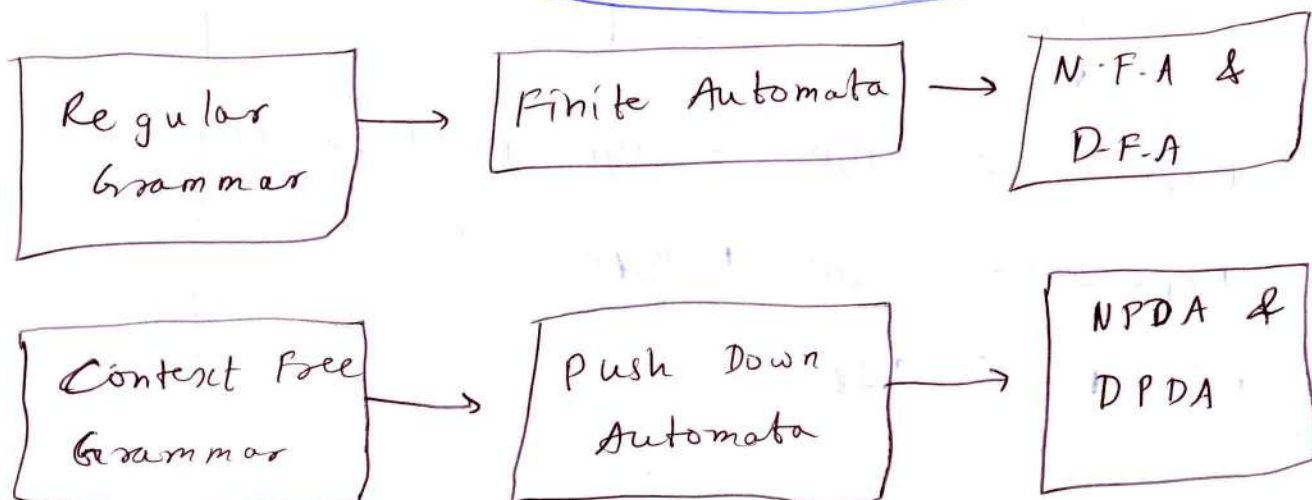 Regular
Grammar
Finite Automata
N.F.A &
D-F-A
Context Free
Grammar
Push Down
Automata
NPDA &
DPDA